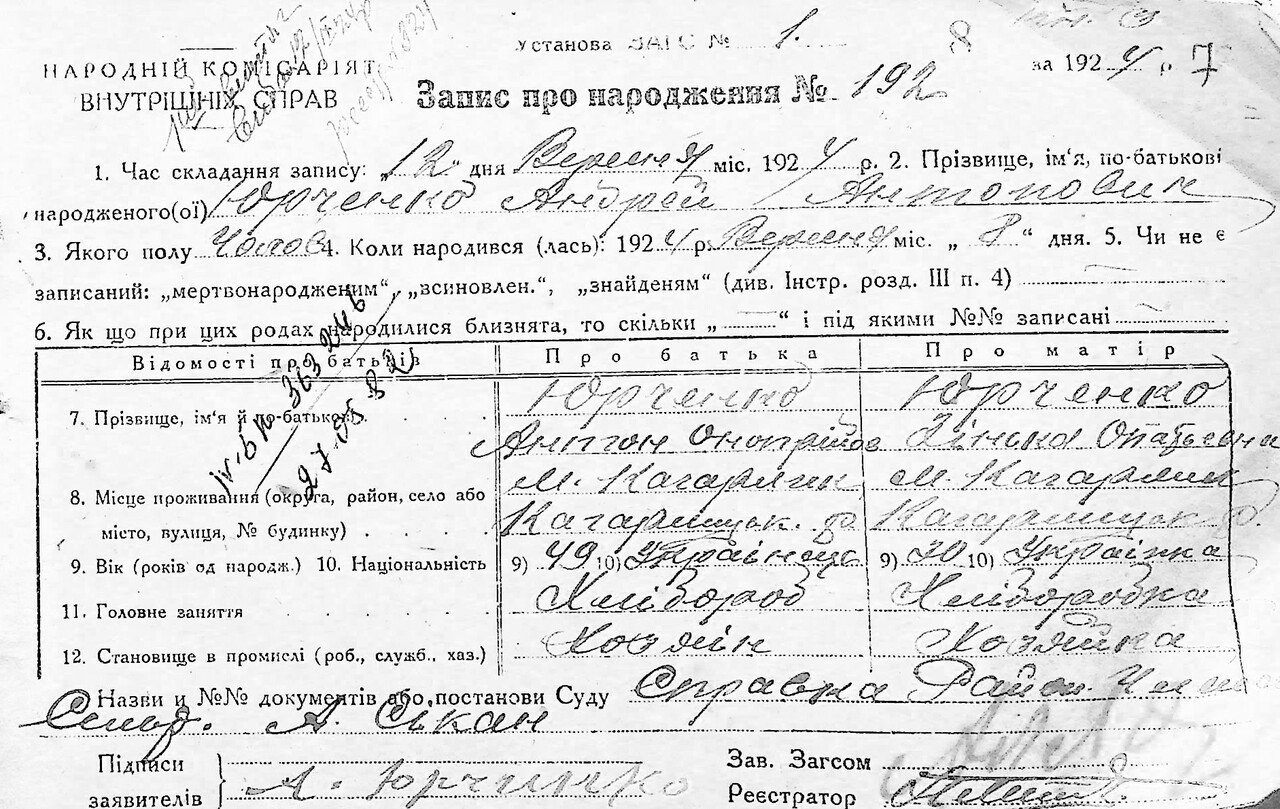 Установа ЗАГС № 1. 8
НАРОДНІЙ КОМІСАРІЯТ
за 1924 р. 7
ВНУТРІШНІХ СПРАВ
Запис про народження № 192
1. Час складання запису: „12“ дня Вересня міс. 1924 р. 2. Прізвище, ім'я, по-батькові
народженого(ої) Юрченко Андрей Антонович
3. Якого полу Чолов 4. Коли народився (лась): 1924 р. Вересня міс. „8“ дня. 5. Чи не є
записаний: „мертвонародженим“, „всиновлен.“, „знайденям“ (див. Інстр. розд. III п. 4)
6. Як що при цих родах народилися близнята, то скільки „ “ і під якими №№ записані
Відомості про батьків Про батька Про матір
7. Прізвище, ім'я й по-батькові Юрченко Юрченко
Антон Оноприйов Зінька Опатьевна
8. Місце проживання (округа, район, село або м. Кагарлик м. Кагарлик
місто, вулиця, № будинку) Кагарлицьк. Кагарлицьк
9. Вік (років од народж.) 10. Національність 9) 49 10) Українець 9) 30 10) Українка
11. Головне заняття Хлібороб Хліборобка
12. Становище в промислі (роб., служб., хаз.) Хозяін Хозяйка
Назви и №№ документів або постанови Суду Справка Район.
А. Ськан
Підписи
заявителів А. Юрченко
Зав. Загсом
Реєстратор
27-05-82